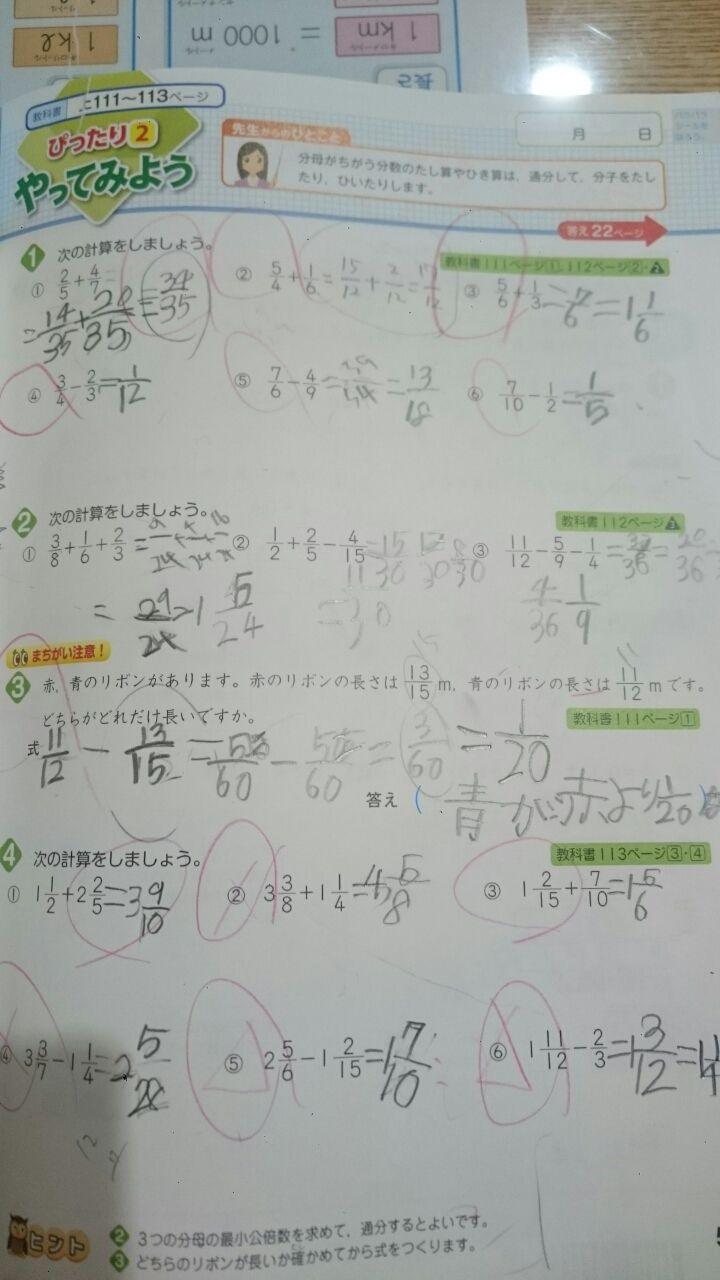 1 km = 1000 m
1 kL
教科書 上111〜113ページ
ぴったり2
やってみよう
先生からのひとこと
分母がちがう分数のたし算やひき算は、通分して、分子をたし
たり、ひいたりします。
月 日
答え 22ページ
1 次の計算をしましょう。
教科書111ページ1、112ページ2・2
① 2/5 + 4/7 =
= 14/35 + 20/35 = 34/35
② 5/4 + 1/6 = 15/12 + 2/12 = 17/12
③ 5/6 + 1/3 = 7/6 = 1 1/6
④ 3/4 - 2/3 = 1/12
⑤ 7/6 - 4/9 = 13/18
⑥ 7/10 - 1/2 = 1/5
2 次の計算をしましょう。
教科書112ページ3
① 3/8 + 1/6 + 2/3 = 9/24 + 4/24 + 16/24
= 29/24 = 1 5/24
② 1/2 + 2/5 - 4/15 = 15/30 12/30 8/30
③ 11/12 - 5/9 - 1/4 = 33/36 - 20/36
4/36 1/9
まちがい注意！
3 赤、青のリボンがあります。赤のリボンの長さは 13/15 m、青のリボンの長さは 11/12 m です。
どちらがどれだけ長いですか。
教科書111ページ1
式 11/12 - 13/15 = 55/60 - 52/60 = 3/60 = 1/20
答え ( 青が赤より1/20
4 次の計算をしましょう。
教科書113ページ3・4
① 1 1/2 + 2 2/5 = 3 9/10
② 3 3/8 + 1 1/4 = 4 5/8
③ 1 2/15 + 7/10 = 1 5/6
④ 3 3/7 - 1 1/4 = 2 5/28
⑤ 2 5/6 - 1 2/15 = 1 7/10
⑥ 1 11/12 - 2/3 = 1 3/12 = 1 1/4
ヒント
2 3つの分母の最小公倍数を求めて、通分するとよいです。
3 どちらのリボンが長いか確かめてから式をつくります。